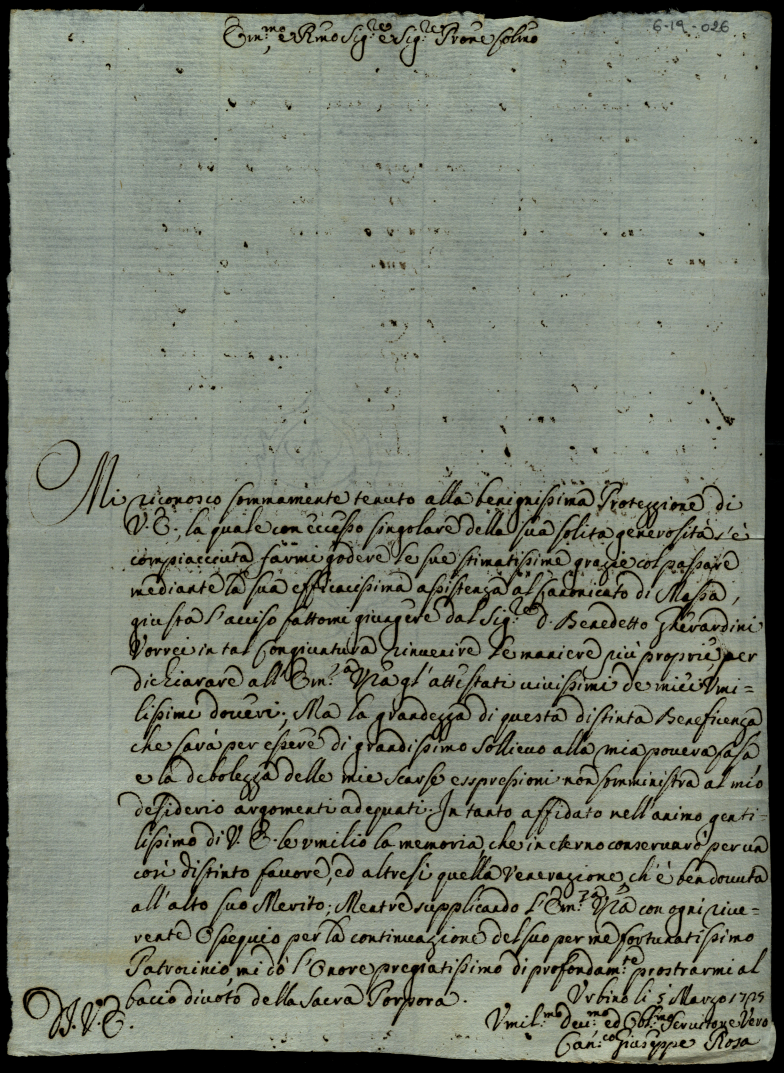 6-19-026
Em.mo, e Rmo Sig.re e Sig.re Prone Colmo
Mi riconosco sommamente tenuto alla benignissima Protezzione di
V. E., la quale con eccesso singolare della sua solita generosità s'è
compiacciuta farmi godere le sue stimatissime grazie col passare
mediante la sua efficacissima assistenza al Canonicato di Massa,
giusta l'avviso fattomi giungere dal Sig.re D. Benedetto Gherardini
Vorrei in tal congiuntura rinvenire le maniere più proprie per
dichiarare all'Em.za Vra gl'attestati vivissimi de miei Vmi=
lissimi doveri; Ma la grandezza di questa distinta Beneficenza
che sarà per essere di grandissimo sollievo alla mia povera Casa
e la debolezza delle mie scarse esspressioni non somministra al mio
desiderio argomenti adequati. In tanto affidato nell'animo genti=
lissimo di V. E. le vmilio la memoria, che in eterno conservarò per un
così distinto favore, ed altresì quella Venerazione, ch'è ben dovuta
all'alto suo Merito; Mentre supplicando l'Em.za Vra con ogni rive=
rente Ossequio per la continuazione del suo per me fortunatissimo
Patrocinio mi dò l'Onore pregiatissimo di profondam.te prostrarmi al
bacio divoto della Sacra Porpora. Vrbino li 5 Marzo 1725
Di V. E.
Vmil.mo Dev.mo ed Obl.mo Servitore Vero
Can.co Giuseppe Rosa